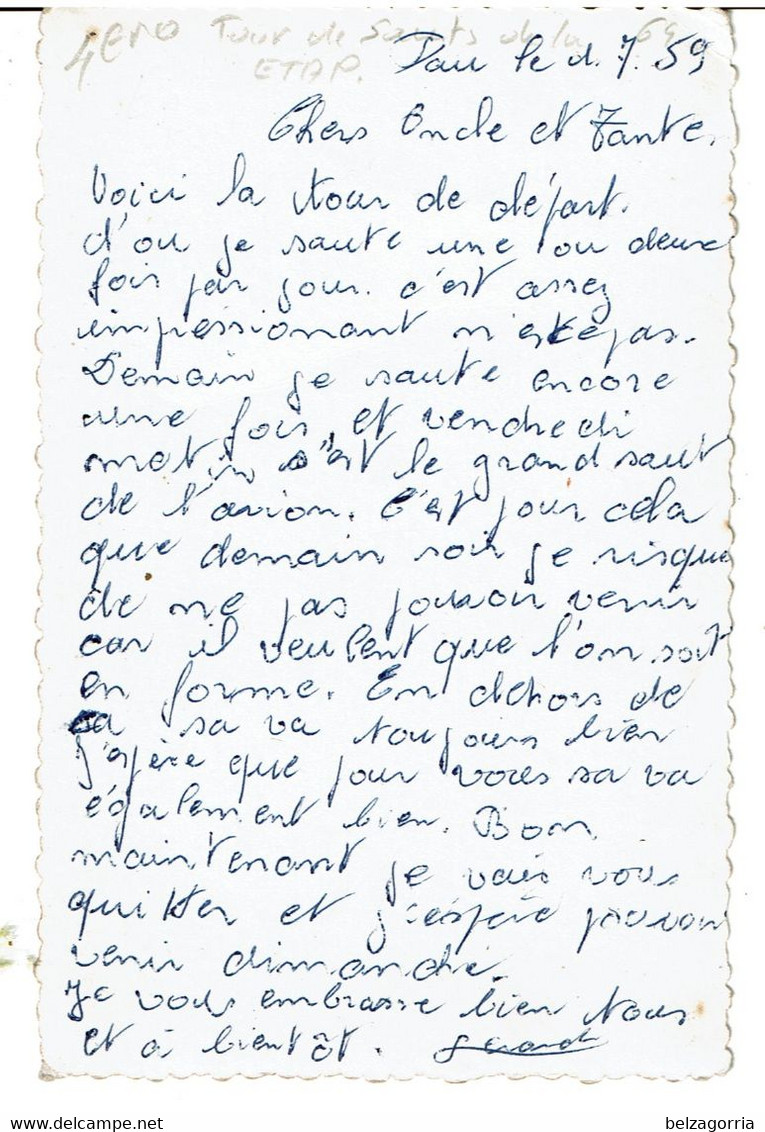 4ero Tour de Sauts de la 64
ETAP.
Pau le 1.7.59
Chers Oncle et Tante.
Voici la tour de départ.
d'ou je saute une ou deux
fois par jour. c'est assez
impressionant n'est pas.
Demain je saute encore
une fois, et vendredi
matin s'est le grand saut
de l'avion. C'est pour cela
que demain soir je risque
de ne pas pouvoir venir
car il veulent que l'on soit
en forme. En dehors de
sa sa va toujours bien
j'espère que pour vous sa va
également bien. Bon
maintenant je vais vous
quitter et j'espère pouvoir
venir dimanche.
Je vous embrasse bien tous
et à bientôt. Gérard
delcampe.net
belzagorria